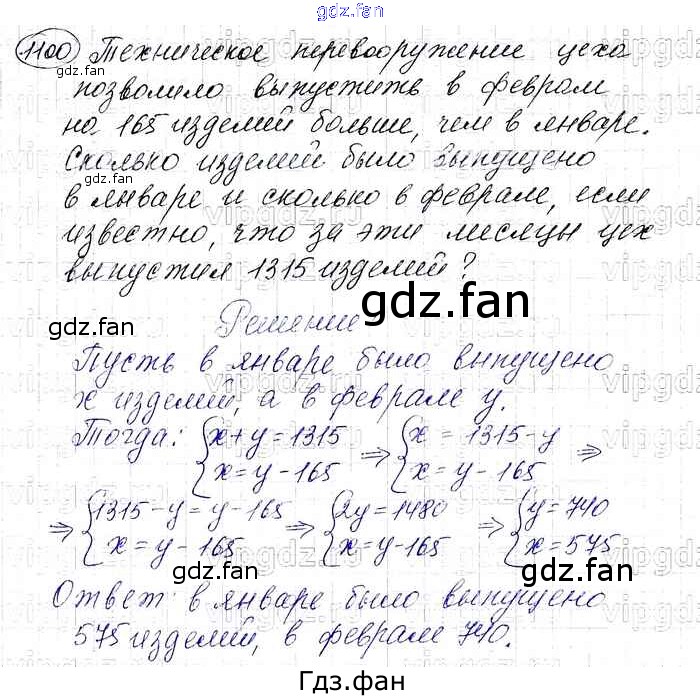 gdz.fan
1100 Техническое перевооружение цеха
gdz.fan
позволило выпустить в феврале
на 165 изделий больше, чем в январе.
Сколько изделий было выпущено
gdz.fan
в январе и сколько в феврале, если
известно, что за эти месяцы цех
выпустил 1315 изделий?
gdz.fan
gdz.fan
Решение
gdz.fan
Пусть в январе было выпущено
x изделий, а в феврале y.
Тогда: {x+y=1315 ⇒ {x=1315-y ⇒
x=y-165 x=y-165
⇒ {1315-y=y-165 ⇒ {2y=1480 ⇒ {y=740
x=y-165 x=y-165 x=575
gdz.fan gdz.fan
Ответ: в январе было выпущено
575 изделий, в феврале 740.
Гдз.фан